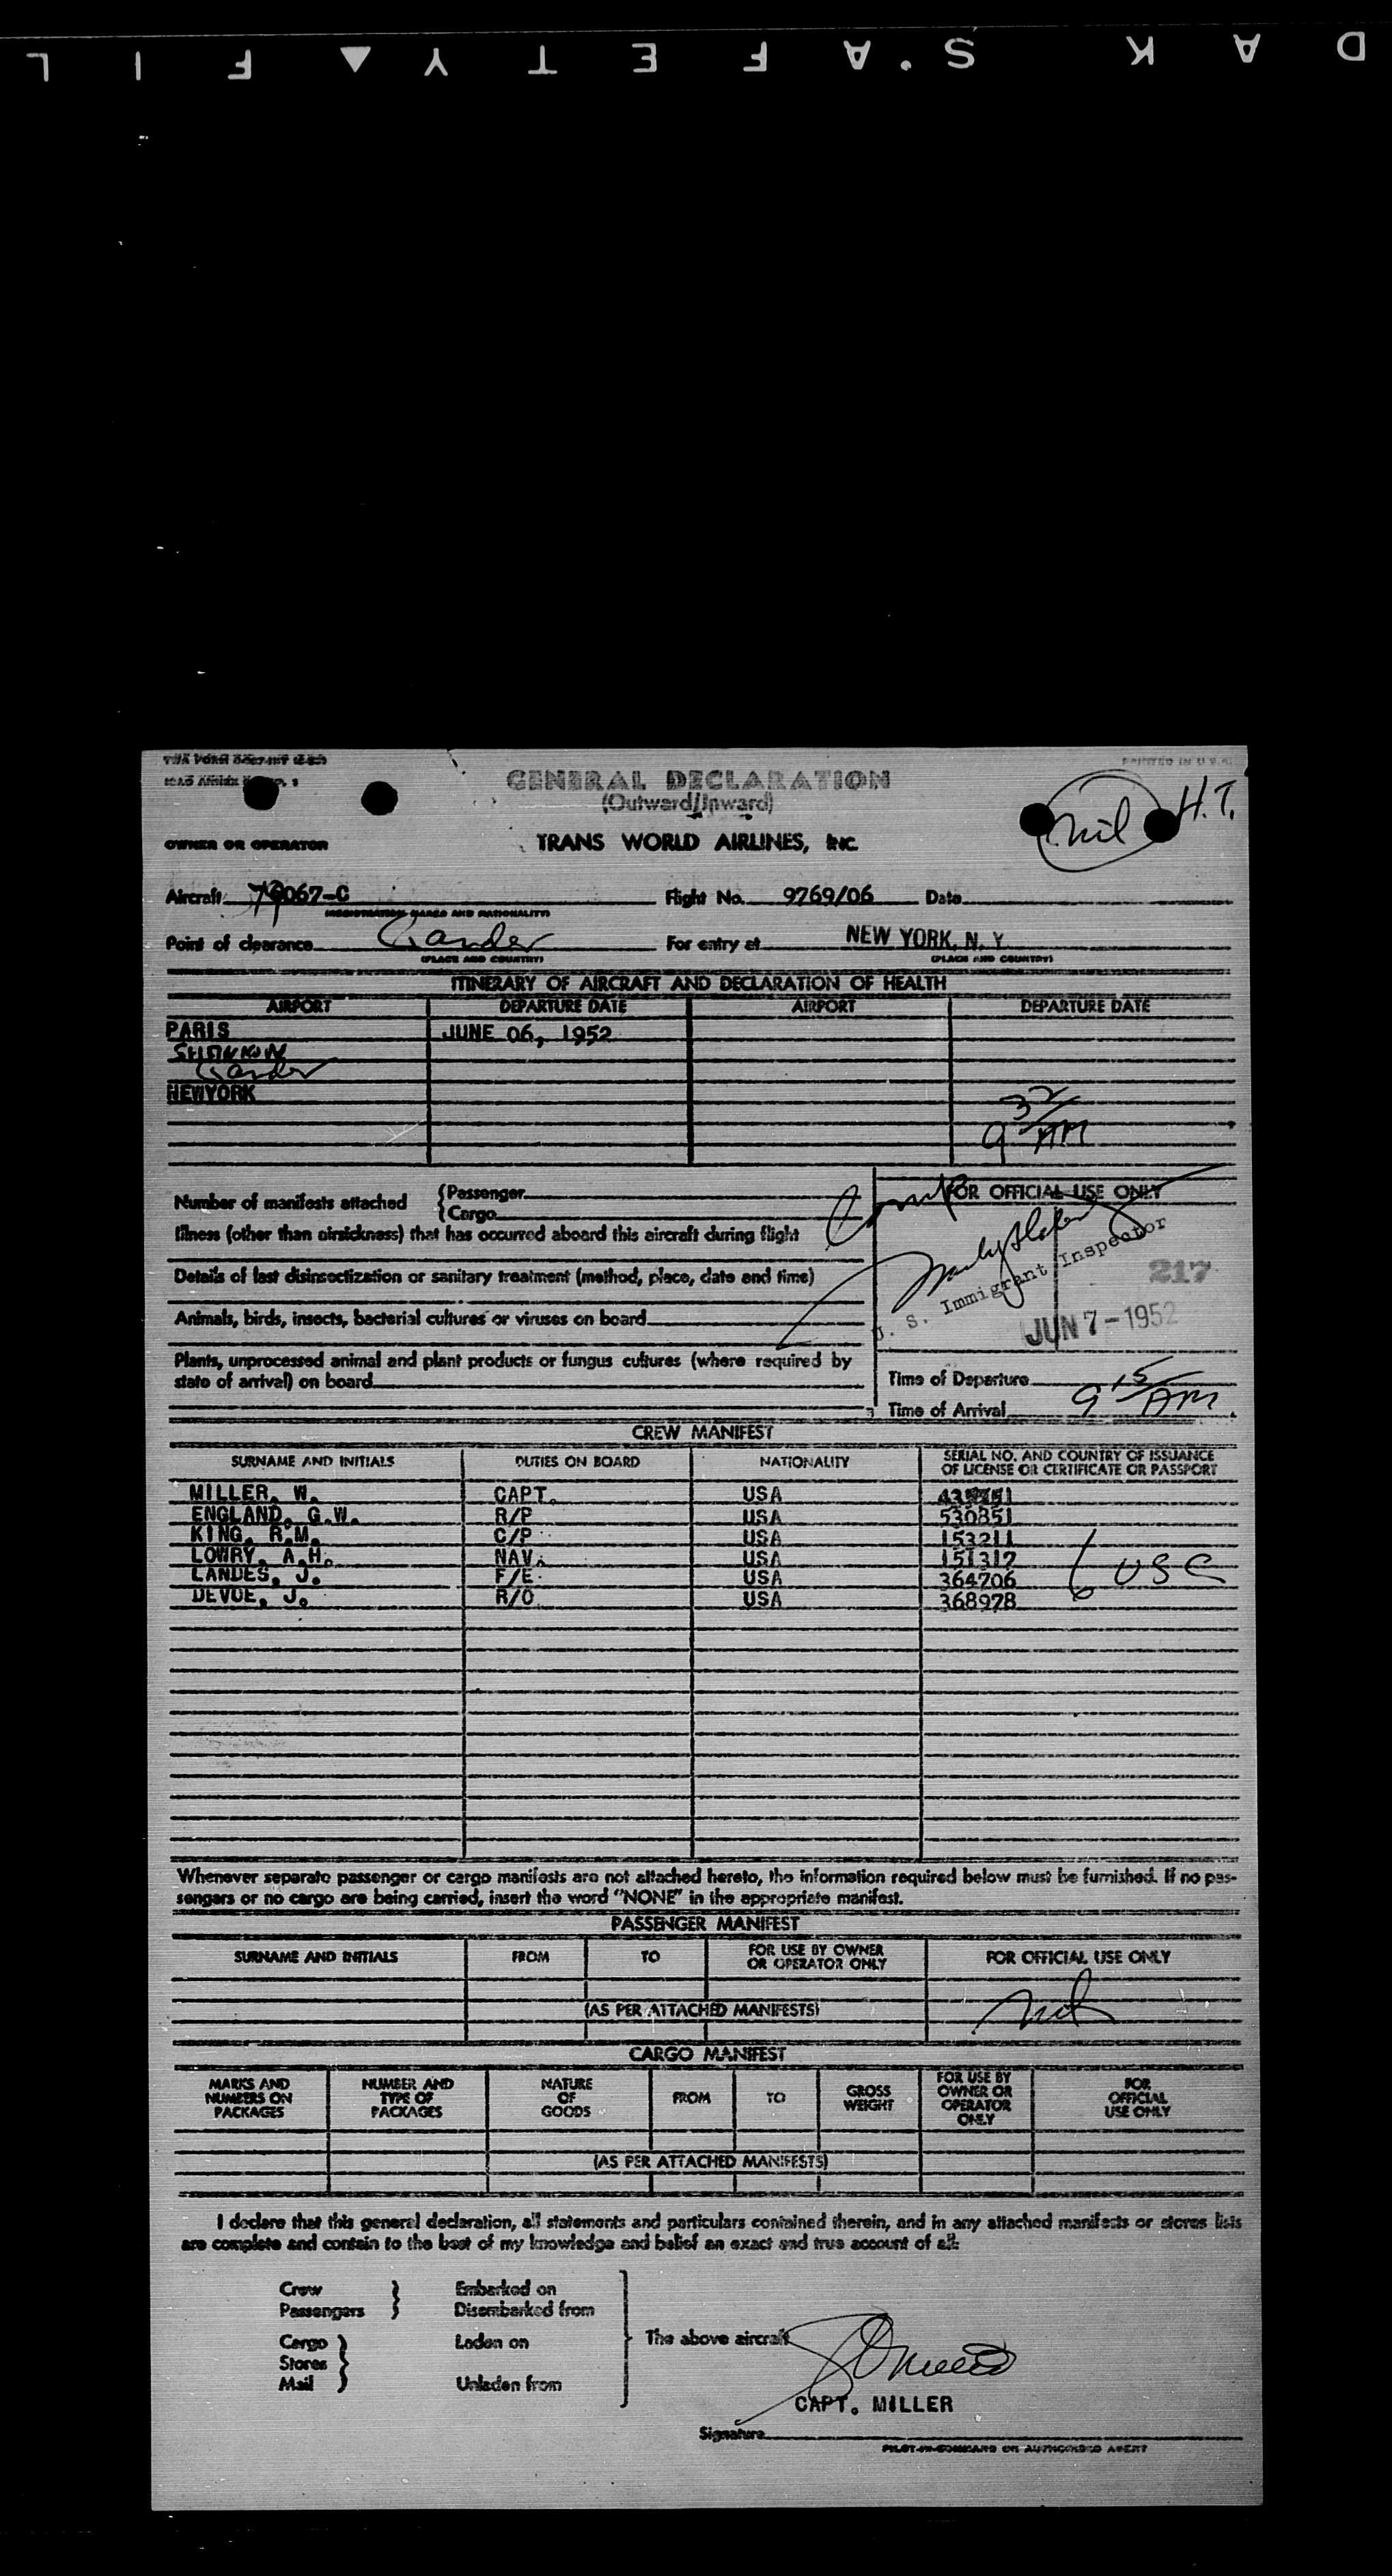 GENERAL DECLARATION
(Outward/Inward)
nil H.T.
OWNER OR OPERATOR TRANS WORLD AIRLINES, INC.
Aircraft 067-C Flight No. 9769/06 Date
(REGISTRATION MARKS AND NATIONALITY)
Point of clearance Gander For entry at NEW YORK, N. Y
(PLACE AND COUNTRY) (PLACE AND COUNTRY)
ITINERARY OF AIRCRAFT AND DECLARATION OF HEALTH
AIRPORT DEPARTURE DATE AIRPORT DEPARTURE DATE
PARIS JUNE 06, 1952
SHANNON
Gander
NEWYORK
9 32 AM
Number of manifests attached { Passenger
{ Cargo
FOR OFFICIAL USE ONLY
Illness (other than airsickness) that has occurred aboard this aircraft during flight
Details of last disinsectization or sanitary treatment (method, place, date and time)
U. S. Immigrant Inspector
217
Animals, birds, insects, bacterial cultures or viruses on board
JUN 7 - 1952
Plants, unprocessed animal and plant products or fungus cultures (where required by
state of arrival) on board
Time of Departure
Time of Arrival 9 15 AM
CREW MANIFEST
SURNAME AND INITIALS DUTIES ON BOARD NATIONALITY SERIAL NO. AND COUNTRY OF ISSUANCE OF LICENSE OR CERTIFICATE OR PASSPORT
MILLER, W. CAPT. USA
ENGLAND, G.W. R/P USA 530851
KING, R.M. C/P USA 153211
LOWRY, A.H. NAV. USA 151317
LANDES, J. F/E USA 364706
DEVUE, J. R/O USA 368978
6 USC
Whenever separate passenger or cargo manifests are not attached hereto, the information required below must be furnished. If no pas-
sengers or no cargo are being carried, insert the word "NONE" in the appropriate manifest.
PASSENGER MANIFEST
SURNAME AND INITIALS FROM TO FOR USE BY OWNER OR OPERATOR ONLY FOR OFFICIAL USE ONLY
(AS PER ATTACHED MANIFESTS) nil
CARGO MANIFEST
MARKS AND NUMBERS ON PACKAGES NUMBER AND TYPE OF PACKAGES NATURE OF GOODS FROM TO GROSS WEIGHT FOR USE BY OWNER OR OPERATOR ONLY FOR OFFICIAL USE ONLY
(AS PER ATTACHED MANIFESTS)
I declare that this general declaration, all statements and particulars contained therein, and in any attached manifests or stores lists
are complete and contain to the best of my knowledge and belief an exact and true account of all:
Crew } Embarked on
Passengers } Disembarked from
Cargo } Laden on The above aircraft
Stores
Mail } Unladen from
CAPT. MILLER
Signature
PILOT-IN-COMMAND OR AUTHORIZED AGENT